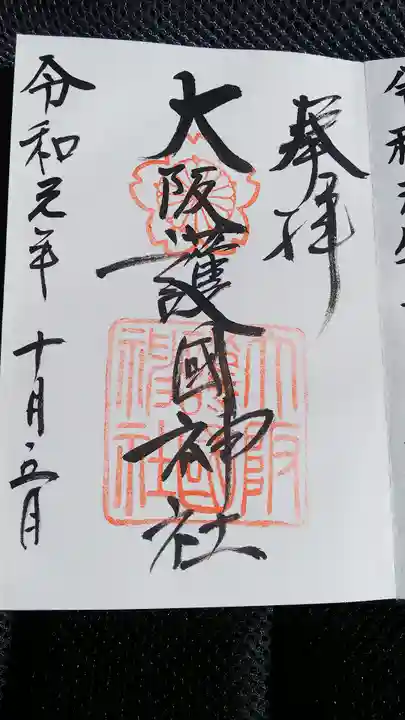 奉拝
大阪護國神社
大阪護国神社
令和元年 十月五日
令和元年